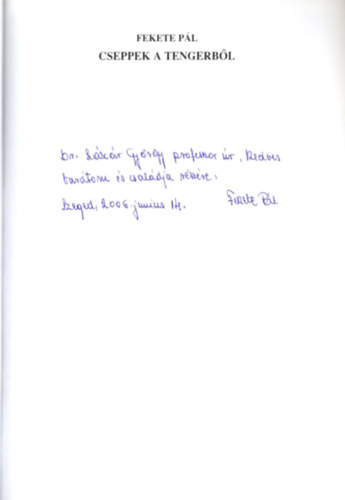 FEKETE PÁL
CSEPPEK A TENGERBŐL
Dr. Lázár György professor úr, kedves
barátom és családja részére.
Szeged, 2006. június 14. Fekete Pál